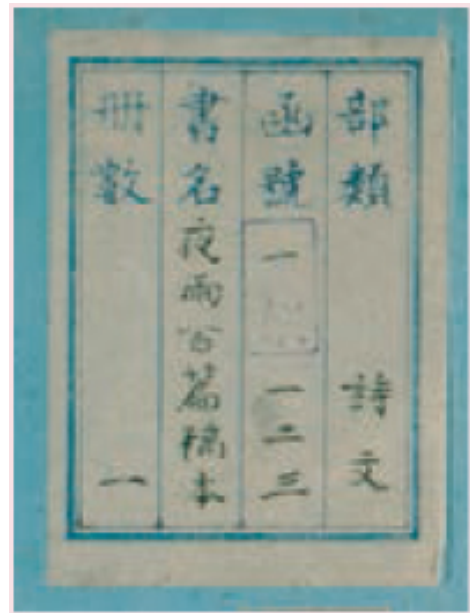 部類 詩文
函號 一 一二三
書名 夜雨篇稿本
册數 一